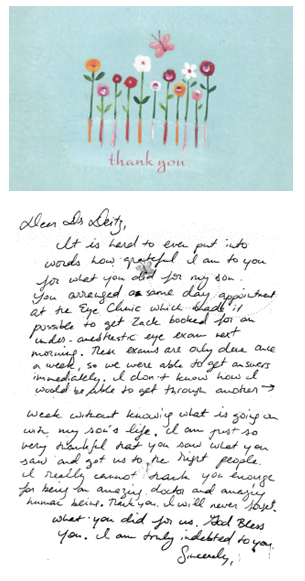 thank you
Dear Dr Deitz,
It is hard to even put into
words how grateful I am to you
for what you did for my son.
You arranged a same day appointment
at the Eye Clinic which made it
possible to get Zack booked for an
under-anesthetic eye exam next
morning. These exams are only done once
a week, so we were able to get answers
immediately. I don't know how I
would be able to get through another →
week without knowing what is going on
with my son's life. I am just so
very thankful that you saw what you
saw and got us to the right people.
I really cannot thank you enough
for being an amazing doctor and amazing
human being. Thank you, I will never forget
what you did for us. God Bless
You. I am truly indebted to you.
Sincerely,